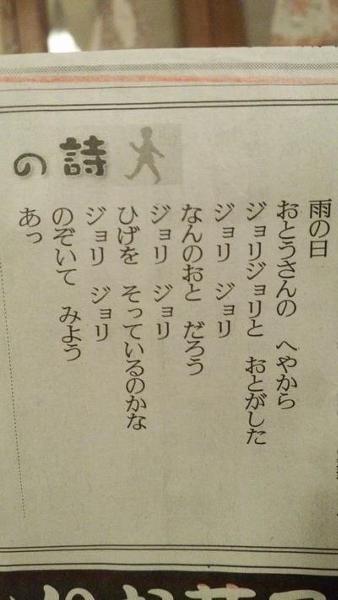 雨の日
おとうさんの　へやから
ジョリジョリと　おとがした
ジョリ　ジョリ
なんのおと　だろう
ジョリ　ジョリ
ひげを　そっているのかな
ジョリ　ジョリ
のぞいて　みよう
あっ
詩の